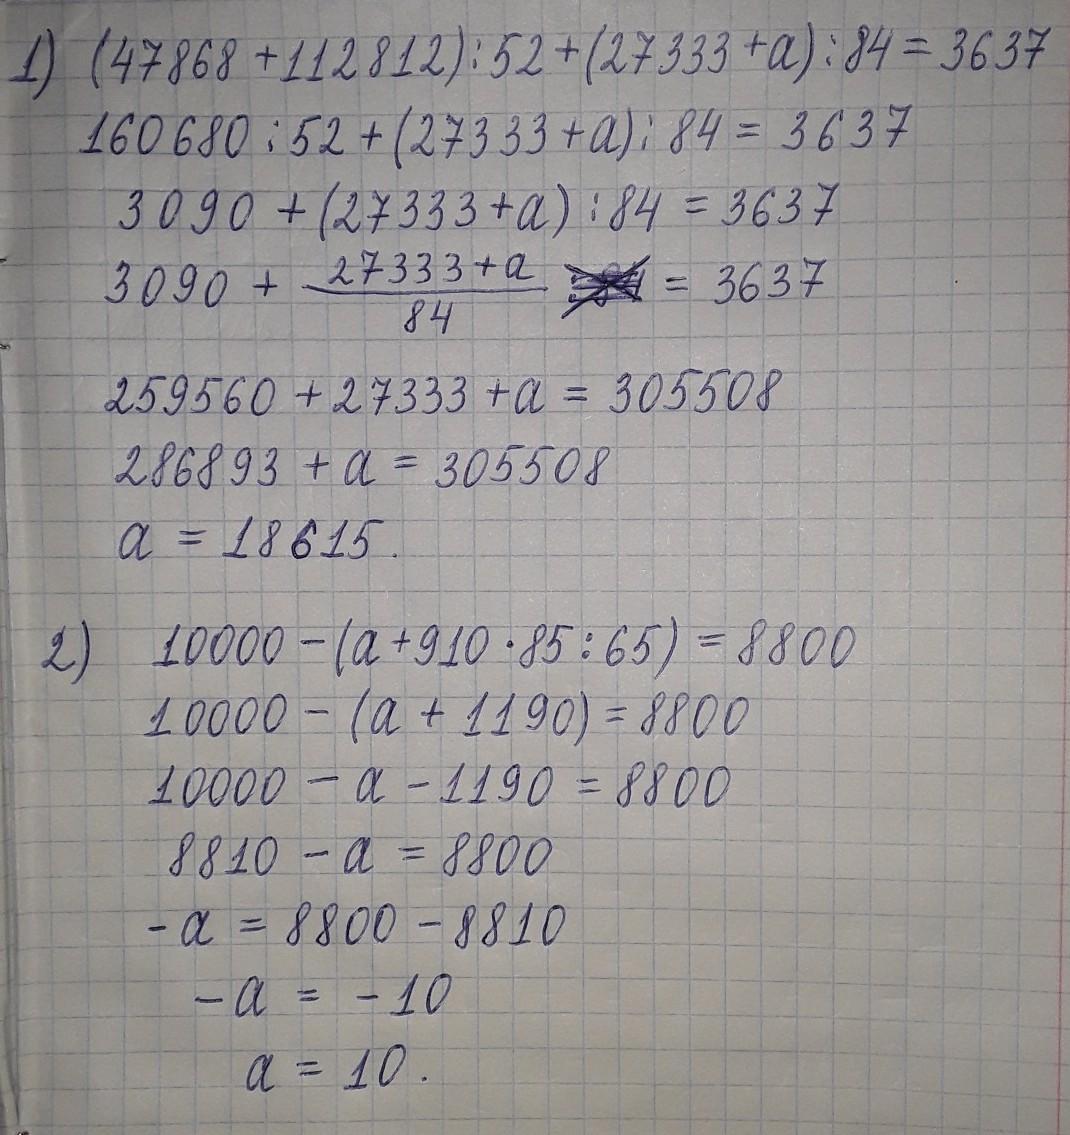 1) (47868+112812):52+(27333+a):84=3637
160680:52+(27333+a):84=3637
3090+(27333+a):84=3637
3090+ 27333+a/84 =3637
259560+27333+a=305508
286893+a=305508
a=18615.
2) 10000-(a+910·85:65)=8800
10000-(a+1190)=8800
10000-a-1190=8800
8810-a=8800
-a=8800-8810
-a=-10
a=10.